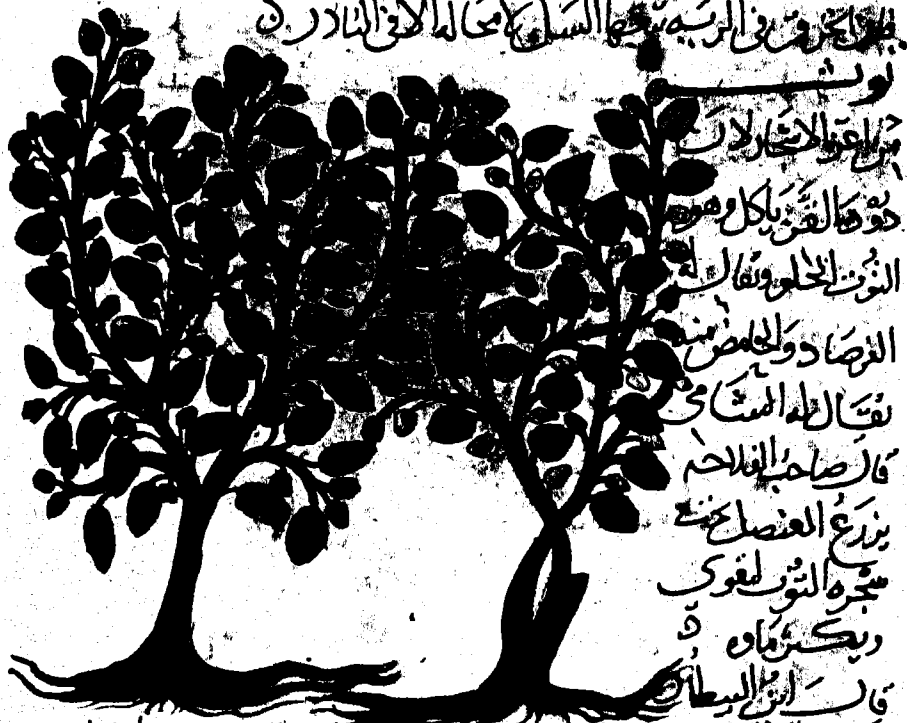 في الرية تبعها السل لا محالة الا في النادر
توت
من اعز الاشجار لان
دود القز ياكل وهو
التوت الحلو ويقال له
الفرصاد والحامض منه
يقال له الشامي
قال صاحب الفلاحه
يزرع العنصل تحت
شجره التوت لتقوى
ويكثر ماوه
قال ابن البيطار